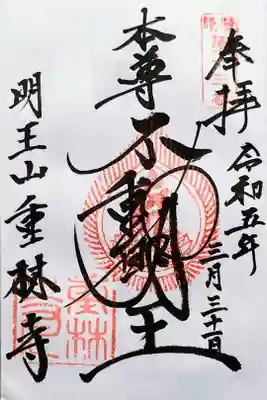 奉拝
令和五年
三月三十一日
本尊不動明王
明王山重林寺